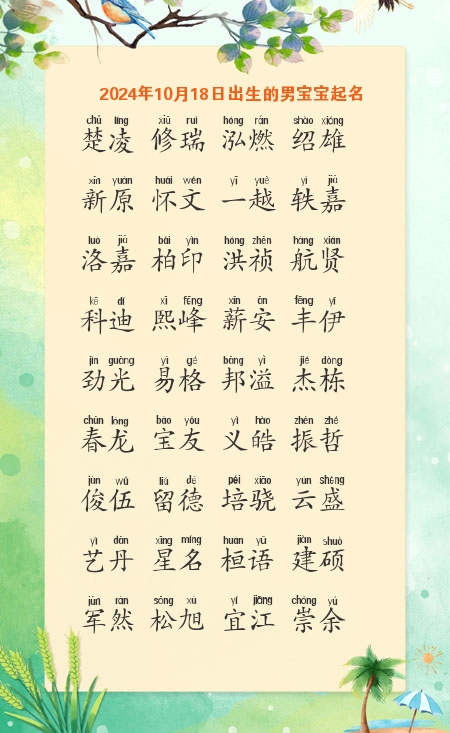 2024年10月18日出生的男宝宝起名
chǔ líng xiū ruì hóng rán shào xióng
楚凌 修瑞 泓燃 绍雄
xīn yuán huái wén yī yuè yì jiā
新原 怀文 一越 轶嘉
luò jiā bǎi yìn hóng zhēn háng xián
洛嘉 柏印 洪祯 航贤
kē dí xī fēng xīn ān fēng yī
科迪 熙峰 薪安 丰伊
jìn guāng yì gé bāng yì jié dòng
劲光 易格 邦溢 杰栋
chūn lóng bǎo yǒu yì hào zhèn zhé
春龙 宝友 义皓 振哲
jùn wǔ liú dé péi xiāo yún shèng
俊伍 留德 培骁 云盛
yì dān xīng míng huán yǔ jiàn shuò
艺丹 星名 桓语 建硕
jūn rán sōng xù yí jiāng chóng yú
军然 松旭 宜江 崇余